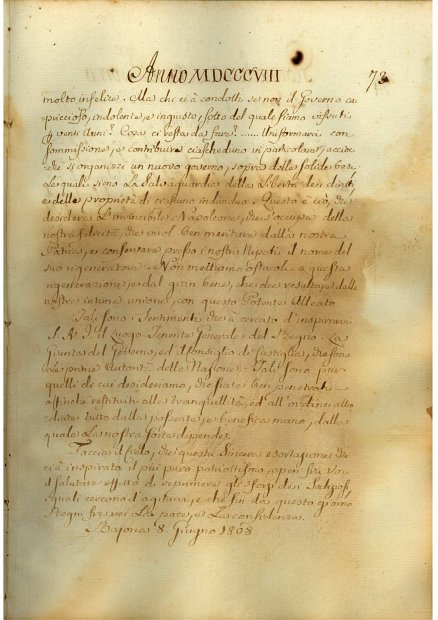 Anno MDCCCVIII 73
molto infelice. Ma chi ci à condotti se non il Governo ca-
priccioso, indolente, e inquieto, sotto del quale siamo vissuti
per venti Anni? Cosa ci resta da fare?...... Uniformarci con
sommissione, e contribuire ciascheduno in particolare, accioc-
chè si organizzi un nuovo governo, sopra delle solide basi
Le quali sieno La Salvaguardia della Libertà dei diritti,
e della proprietà di ciascuno individuo. Questo è ciò, che
desidera L'invincibile Napoleone, che s'occupa della
nostra felicità, che vuol ben meritare dalla nostra
Patria, e conservare presso i nostri Nipoti il nome del
suo rigeneratore. Non mettiamo ostacolo a questa
rigenerazione, e al gran bene, che dee resultare dalla
nostra intima unione con questo Potente Alleato
Tali sono i Sentimenti che à cercato d'inspirarvi
S. A. I. il Luogo-Tenente Generale del Regno. La
Giunta del Governo, ed il Consiglio di Castiglia, che sono
Le prime Autorità della Nazione. Tali sono pur
quelli di cui desideriamo, che siate ben penetrati
affinchè restituiti alla tranquillità, ed all'ordine atten-
diate tutto dalla possente, e benefica mano, dalla
quale La nostra sorte dipende.
Faccia il Cielo, che questa Sincera esortazione che
ci à inspirata il più puro patriottismo, operi fra voi
il salutare effetto di reprimere gli sforzi dei Sediziosi,
i quali cercono d'agitarvi, e che fin da questo giorno
Regni fra voi La pace, e La confidenza.
Bajona 8. Giugno 1808